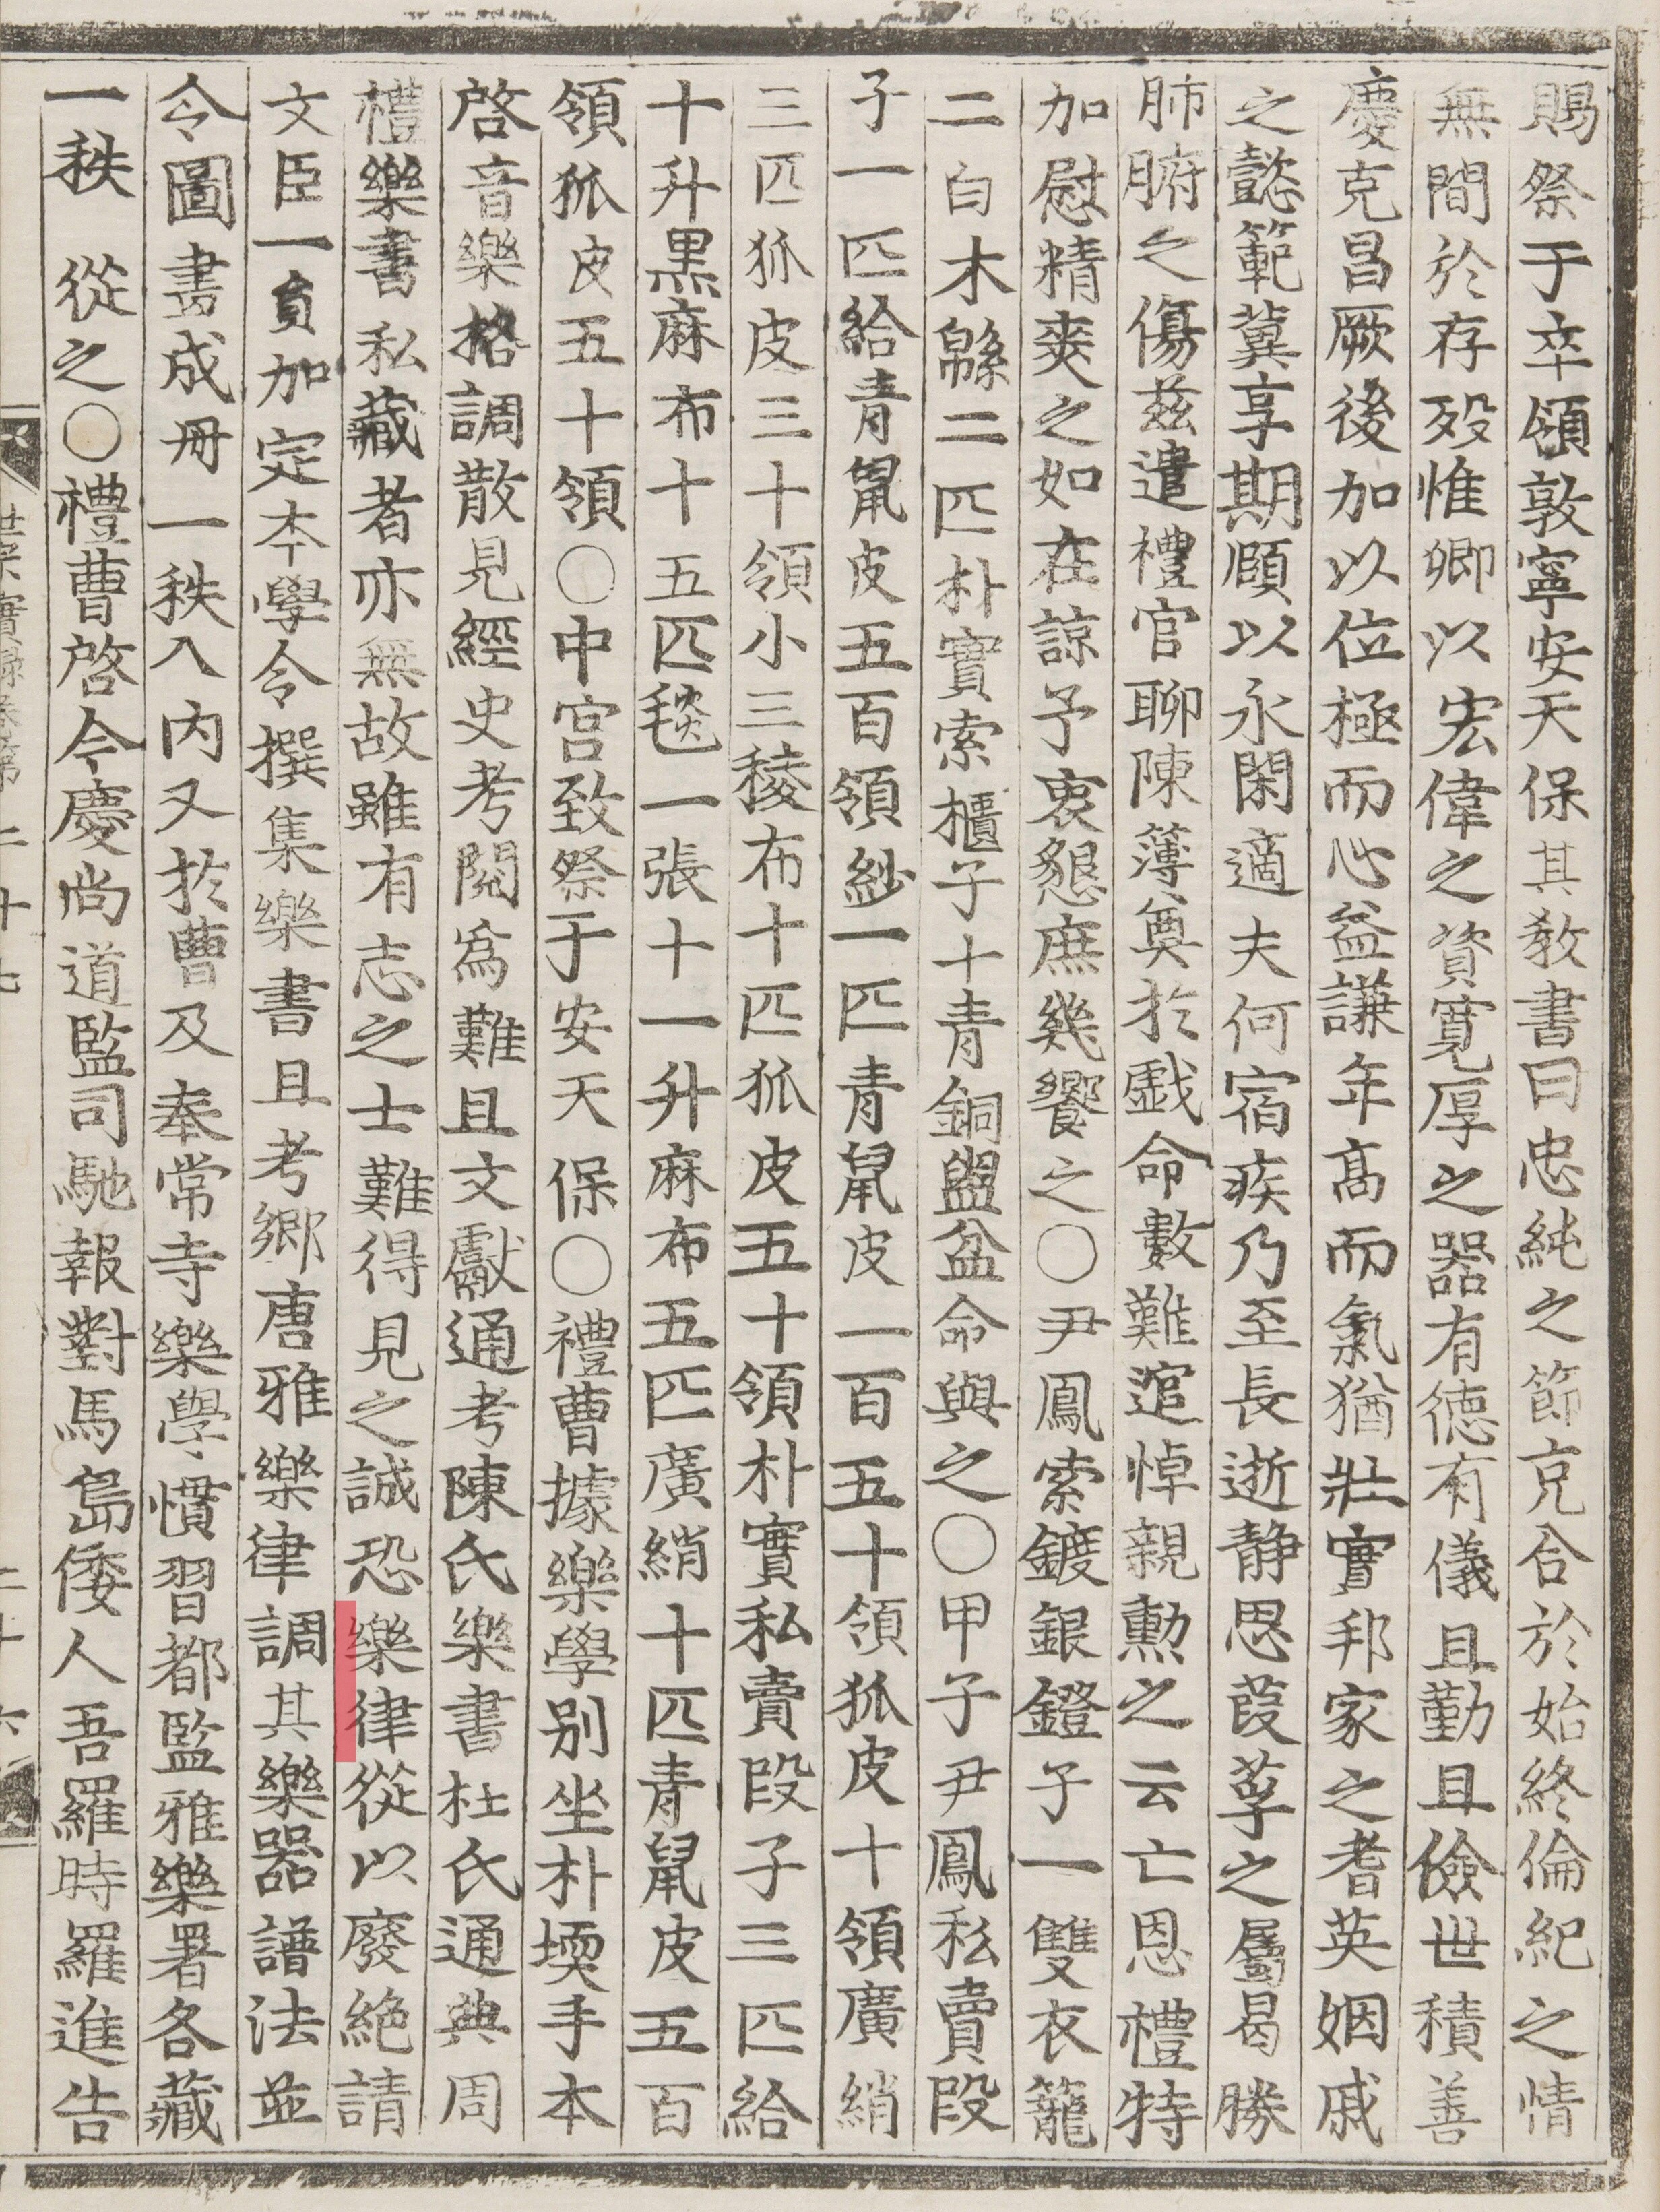 賜祭于卒領敦寧安天保其敎書曰忠純之節克合於始終倫紀之情
無間於存歿惟卿以宏偉之資寬厚之器有德有儀且勤且儉世積善
慶克昌厥後加以位極而心益謙年髙而氣猶壯實邦家之耆英姻戚
之懿範冀享期頤以永閑適夫何宿疾乃至長逝静思葭莩之屬曷勝
肺腑之傷玆遣禮官聊陳簿奠於戱命數難逭悼親勲之云亡恩禮特
加慰精爽之如在諒予衷懇庶幾饗之○尹鳳索鍍銀鐙子一雙衣籠
二白木緜二匹朴實索櫃子十青銅盥盆命與之○甲子尹鳳私賣段
子一匹給青鼠皮五百領紗一匹青鼠皮一百五十領狐皮十領廣綃
三匹狐皮三十領小三稜布十匹狐皮五十領朴實私賣段子三匹給
十升黒麻布十五匹毯一張十一升麻布五匹廣綃十匹青鼠皮五百
領狐皮五十領○中宮致祭于安天保○禮曹據樂學別坐朴堧手本
啓音樂格調散見經史考閱爲難且文獻通考陳氏樂書杜氏通典周
禮樂書私藏者亦無故雖有志之士難得見之誠恐樂律從以廢絶請
文臣一員加定本學令撰集樂書且考鄕唐雅樂律調其樂器譜法並
令圖畵成冊一秩入內又於曹及奉常寺樂學慣習都監雅樂署各藏
一秩 從之○禮曹啓今慶尙道監司馳報對馬島倭人吾羅時羅進告